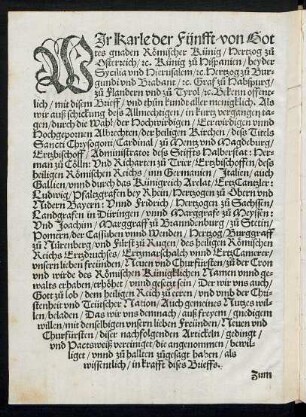 WIr Karle der Fünfft von Got
tes gnaden Römischer Künig / Hertzog zů
Osterreich / ⁊c. Künig zů Hispanien / beyder
Sycilia vnd Hierusalem / ⁊c. Hertzog zů Bur
gundi vnd Brabant / ⁊c. Graf zů Habspurg /
zů Flandern vnd zů Tyrol / ⁊c. Bekenn offent
lich / mit disem Brieff / vnd thůn kund aller menigklich. Als
wir auß schickung des Allmechtigen / in kurtz vergangen ta
gen / durch die Wahl der Hochwirdigen / Eerwirdigen vnnd
Hochgepornen Albrechten / der heiligen Kirchen / des Titels
Sancti Chrysogoni / Cardinal / zů Mentz vnd Magdeburg /
Ertzbischoff / Administratorn des Stiffts Halberstat: Her
man zů Cöln: Vnd Richarten zů Trier / Ertzbischoffen / des
heiligen Römischen Reichs / inn Germanien / Italien / auch
Gallien / vnnd durch das Künigreich Arelat / Ertz Cantzler:
Ludwig / Pfaltzgrafen bey Rhein / Hertzogen zů Obern vnd
Nidern Bayern: Vnnd Fridrich / Hertzogen zů Sachssen /
Landgrafen in Düringen / vnnd Marggrafe zů Meyssen:
Vnd Joachim / Marggraff zů Brandenburg / zů Stetin /
Pomern / der Cassuben vnnd Wenden / Burggraff
zů Nürenberg / vnd Fürst zů Rugen / des heiligen Römischen
Reichs Ertzdruchses / Ertzmarschalch vnnd Ertz Camerer /
vnsern lieben freünden / Neuen vnd Churfürsten / zů der Cron
vnd würde des Römischen Künigklichen Namen vnnd ge
walts erhaben / erhöhet / vnnd gesetzt sein / Der wir vns auch /
Gott zů lob / dem heiligen Reich zů eeren / vnd vmb der Chri
stenheit vnd Teütscher Nation / Auch gemeines Nutzes wil
len / beladen / Das wir vns demnach / auß freyem / gnedigem
willen / mit denselbigen vnsern lieben Freünden / Neuen vnd
Churfürsten / diser nachfolgenden Artickeln / gedingt /
vnd Pactsweiß vereiniget / die angenommen / bewil-
liget / vnnd zů hallten zůgesagt haben / als
wissenlich / in krafft dises Brieffs.
Zum